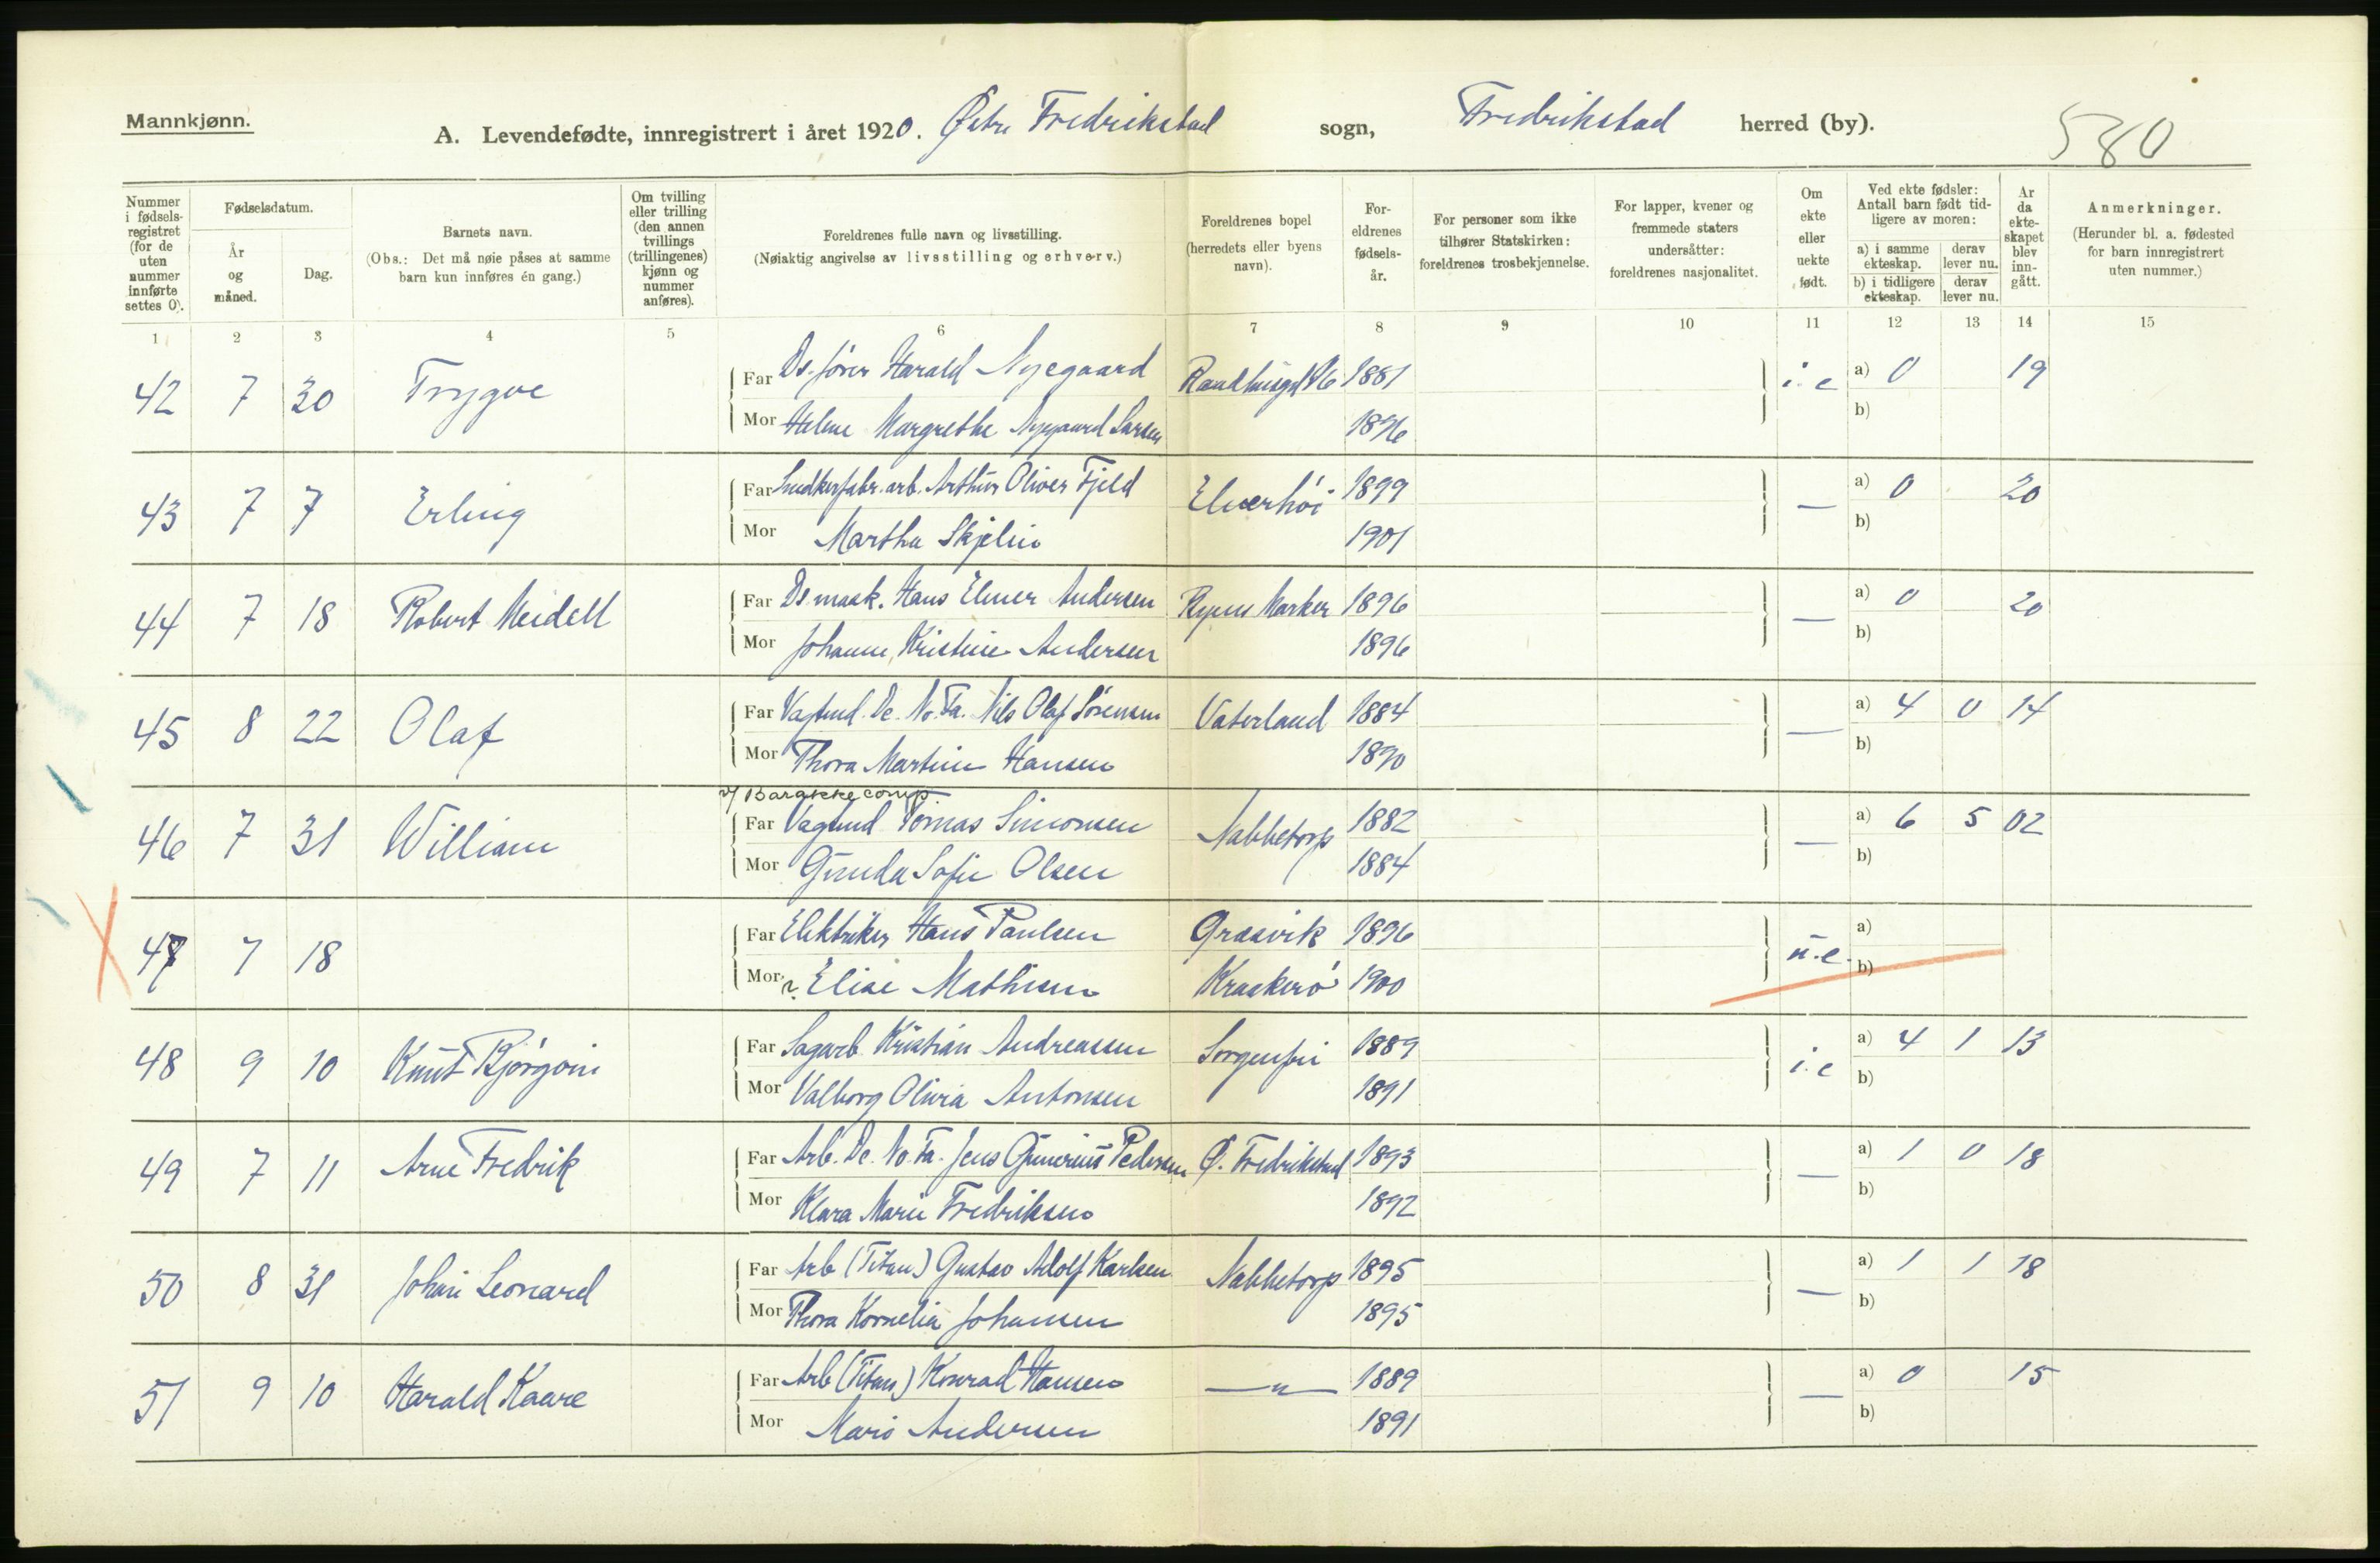 Mannkjønn.
A. Levendefødte, innregistrert i året 1920. Østre Fredrikstad sogn, Fredrikstad herred (by).
580
Nummer i fødselsregistret (for de uten nummer innførte settes 0).
Fødselsdatum.
År og måned.
Dag.
Barnets navn.
(Obs.: Det må nøie påses at samme barn kun innføres én gang.)
Om tvilling eller trilling (den annen tvillings (trillingenes) kjønn og nummer anføres).
Foreldrenes fulle navn og livsstilling.
(Nøiaktig angivelse av livsstilling og erhverv.)
Foreldrenes bopel (herredets eller byens navn).
Foreldrenes fødselsår.
For personer som ikke tilhører Statskirken: foreldrenes trosbekjennelse.
For lapper, kvener og fremmede staters undersåtter: foreldrenes nasjonalitet.
Om ekte eller uekte født.
Ved ekte fødsler: Antall barn født tidligere av moren:
a) i samme ekteskap. derav lever nu.
b) i tidligere ekteskap. derav lever nu.
År da ekteskapet blev inngått.
Anmerkninger.
(Herunder bl. a. fødested for barn innregistrert uten nummer.)
1 2 3 4 5 6 7 8 9 10 11 12 13 14 15
42 7 30 Trygve Far Ds. fører Harald Nyegaard 1881 i.e a) 0 19
Mor Helene Margrethe Nygaard Larsen 1896 b)
43 7 7 Erling Far arb. Arthur Oliver Fjeld Elverhöi 1899 — a) 0 20
Mor Martha Skjelin 1901 b)
44 7 18 Robert Meidell Far Ds mask. Hans Elmer Andersen Ryens Marker 1896 — a) 0 20
Mor Johanne Kristine Andersen 1896 b)
45 8 22 Olaf Far Vagtmd. De. No. Fa. Nils Olaf Sörensen Vaterland 1884 — a) 4 0 14
Mor Thora Martine Hansen 1890 b)
v/ Barakkecomp.
46 7 31 William Far Vagtmd Tomas Simonsen Nabbetorp 1882 — a) 6 5 02
Mor Gunda Sofie Olsen 1884 b)
47 7 18 Far Elektriker Hans Paulsen Græsvik 1896 u.e. a)
Mor Elise Mathisen Kraakerö 1900 b)
48 9 10 Knut Björgvin Far Sagarb Kristian Andreassen Sorgenfri 1889 i.e a) 4 1 13
Mor Valborg Olivia Antonsen 1891 b)
49 7 11 Arne Fredrik Far Arb. De. No. Fa. Jens Gunerius Pedersen Ø. Fredrikstad 1893 — a) 1 0 18
Mor Klara Marie Fredriksen 1892 b)
50 8 31 Johan Leonard Far Arb (Titan) Gustav Adolf Karlsen Nabbetorp 1895 — a) 1 1 18
Mor Thora Kornelia Johansen 1895 b)
51 9 10 Harald Kaare Far Arb (Titan) Konrad Hansen —"— 1889 — a) 0 15
Mor Marie Andersen 1891 b)